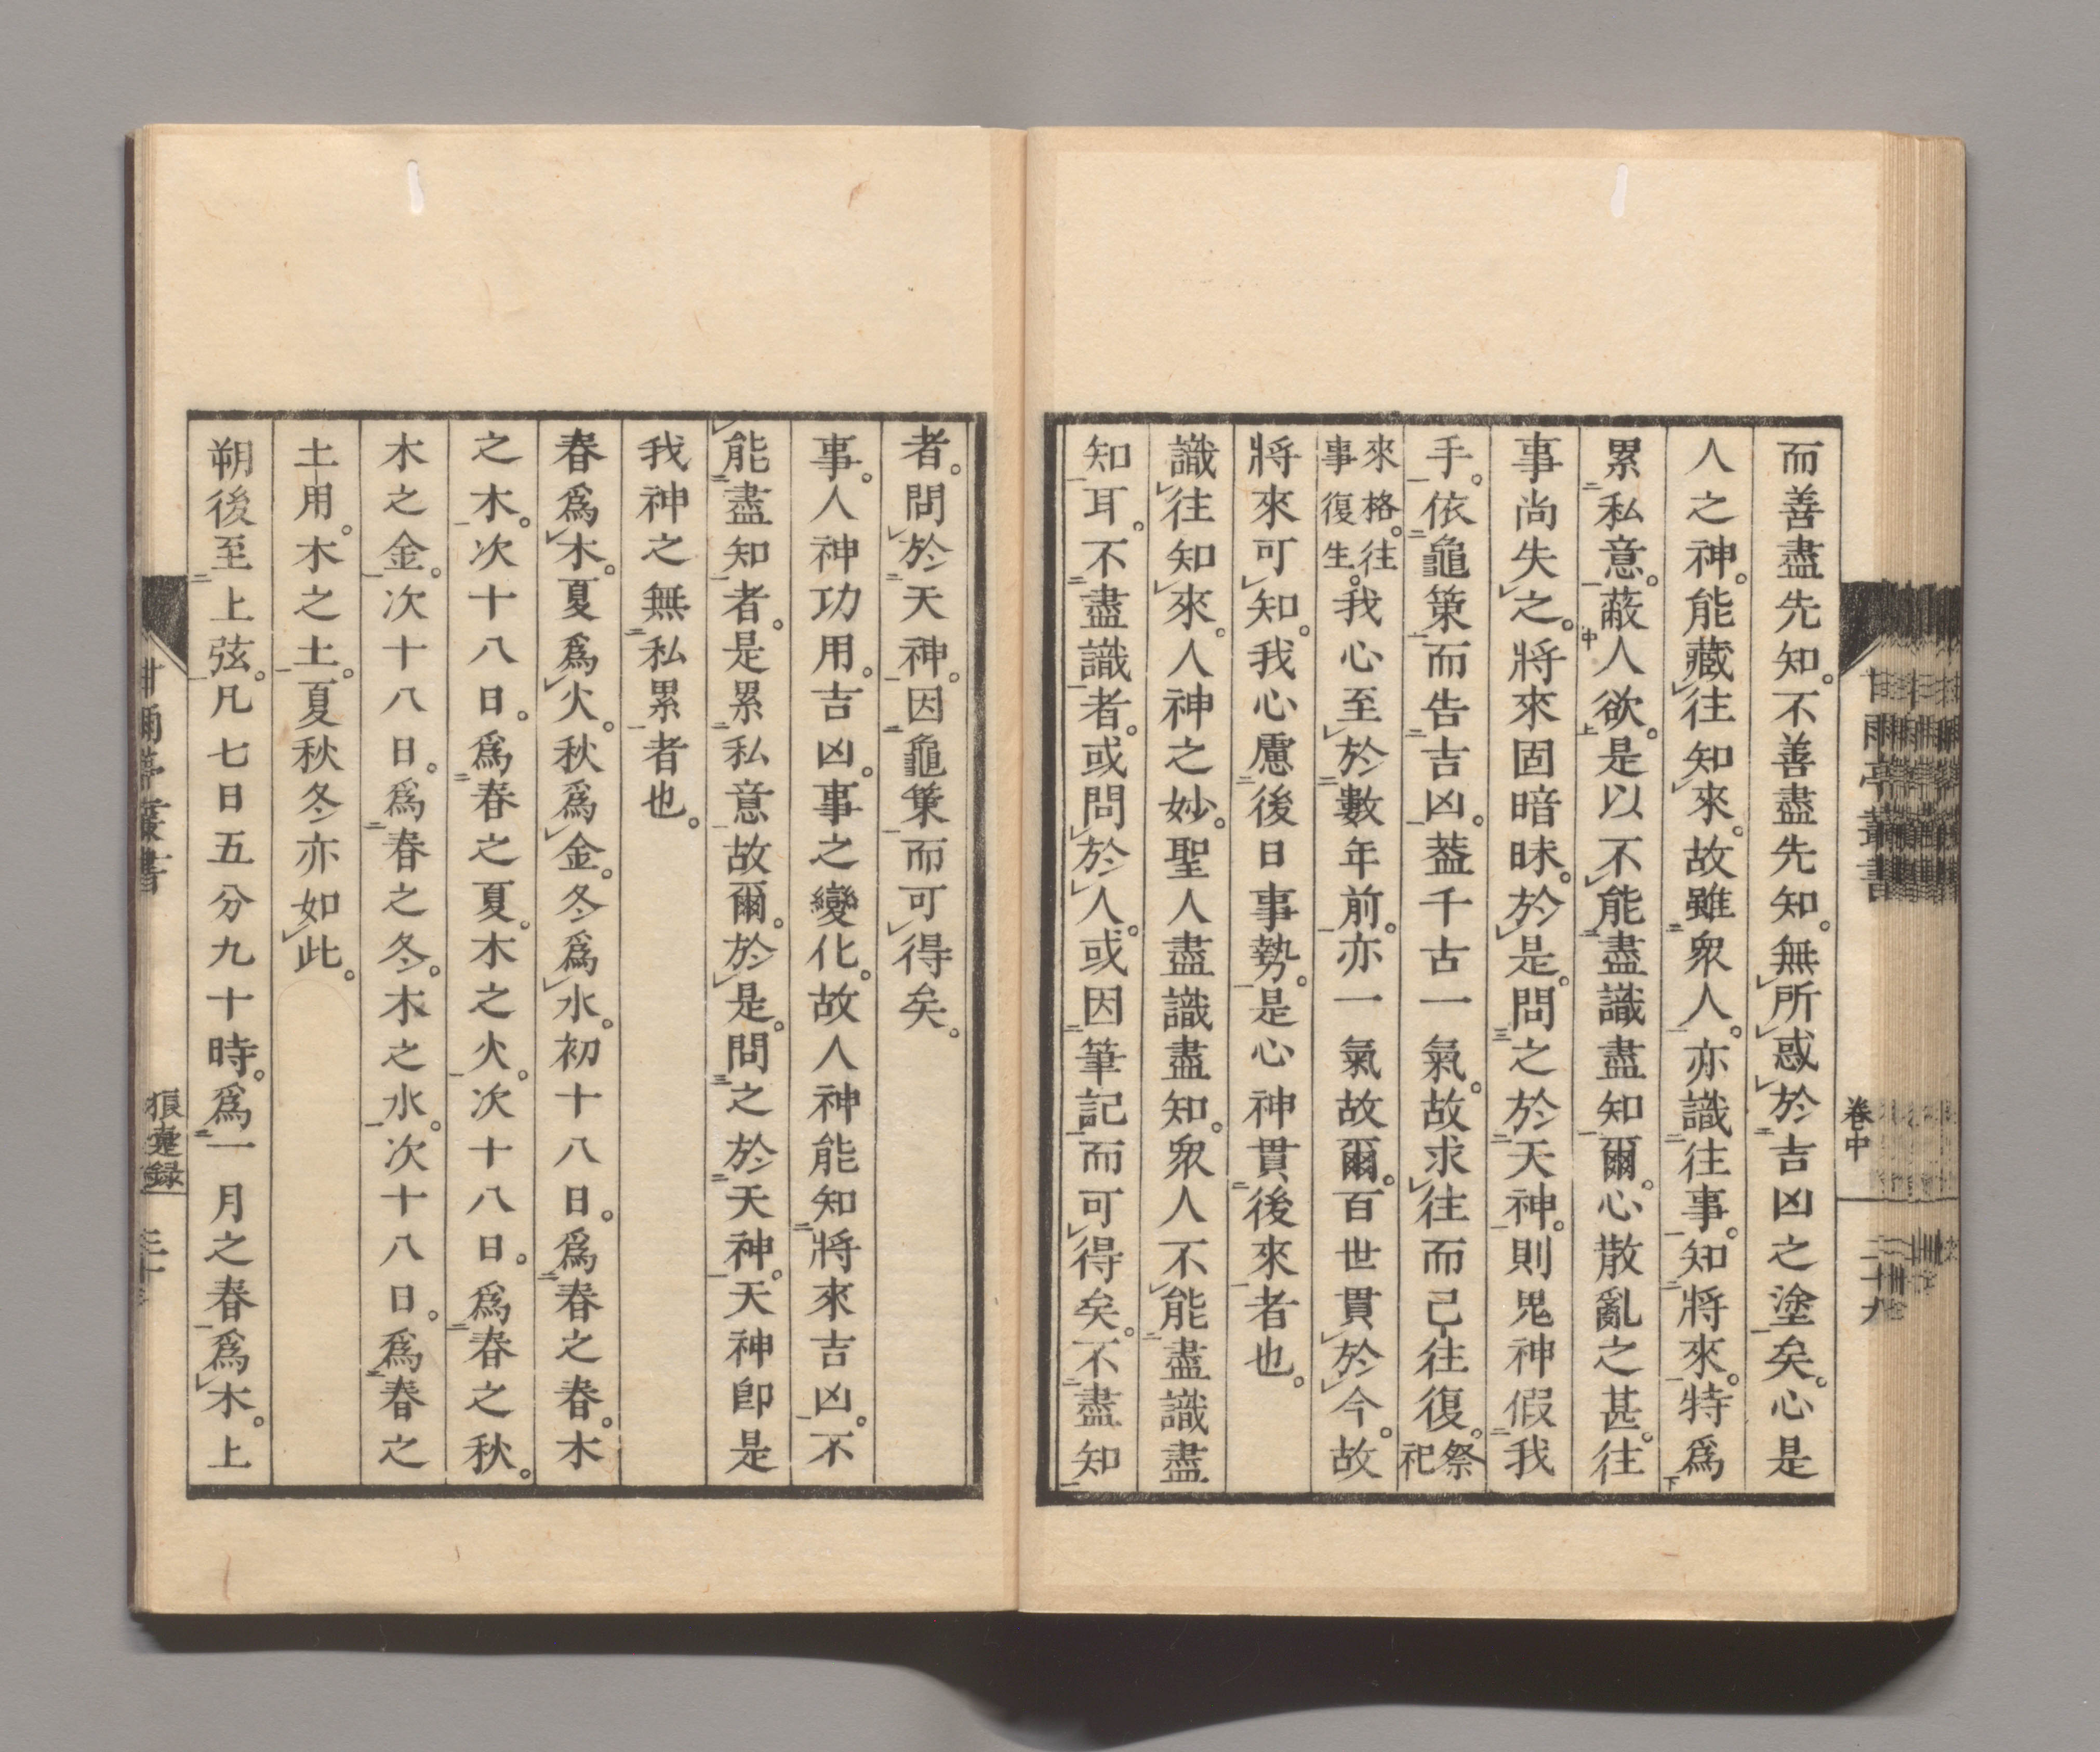 而善盡先知。不善盡先知。無所惑於吉凶之塗矣。心是
人之神。能藏往知來。故雖衆人。亦識往事。知將來。特爲
累私意。蔽人欲。是以不能盡識盡知爾。心散亂之甚。往
事尚失之。將來固暗昧。於是問之於天神。則鬼神假我
手。依龜筴而告吉凶。葢千古一氣。故求往而已往復。祭祀
來格。往事復生。我心至於數年前。亦一氣故爾。百世貫於今。故
將來可知。我心慮後日事勢。是心神貫後來者也。
識往知來。人神之妙。聖人盡識盡知。衆人不能盡識盡
知耳。不盡識者。或問於人。或因筆記而可得矣。不盡知
者。問於天神。因龜筴而可得矣。
事。人神功用。吉凶。事之變化。故人神能知將來吉凶。不
能盡知者。是累私意故爾。於是。問之於天神。天神卽是
我神之無私累者也。
春爲木。夏爲火。秋爲金。冬爲水。初十八日。爲春之春。木
之木。次十八日。爲春之夏。木之火。次十八日。爲春之秋。
木之金。次十八日。爲春之冬。木之水。次十八日。爲春之
土用。木之土。夏秋冬亦如此。
朔後至上弦。凡七日五分九十時。爲一月之春。爲木。上
甘雨亭叢書
卷中
二十九
甘雨亭叢書
狼疐録